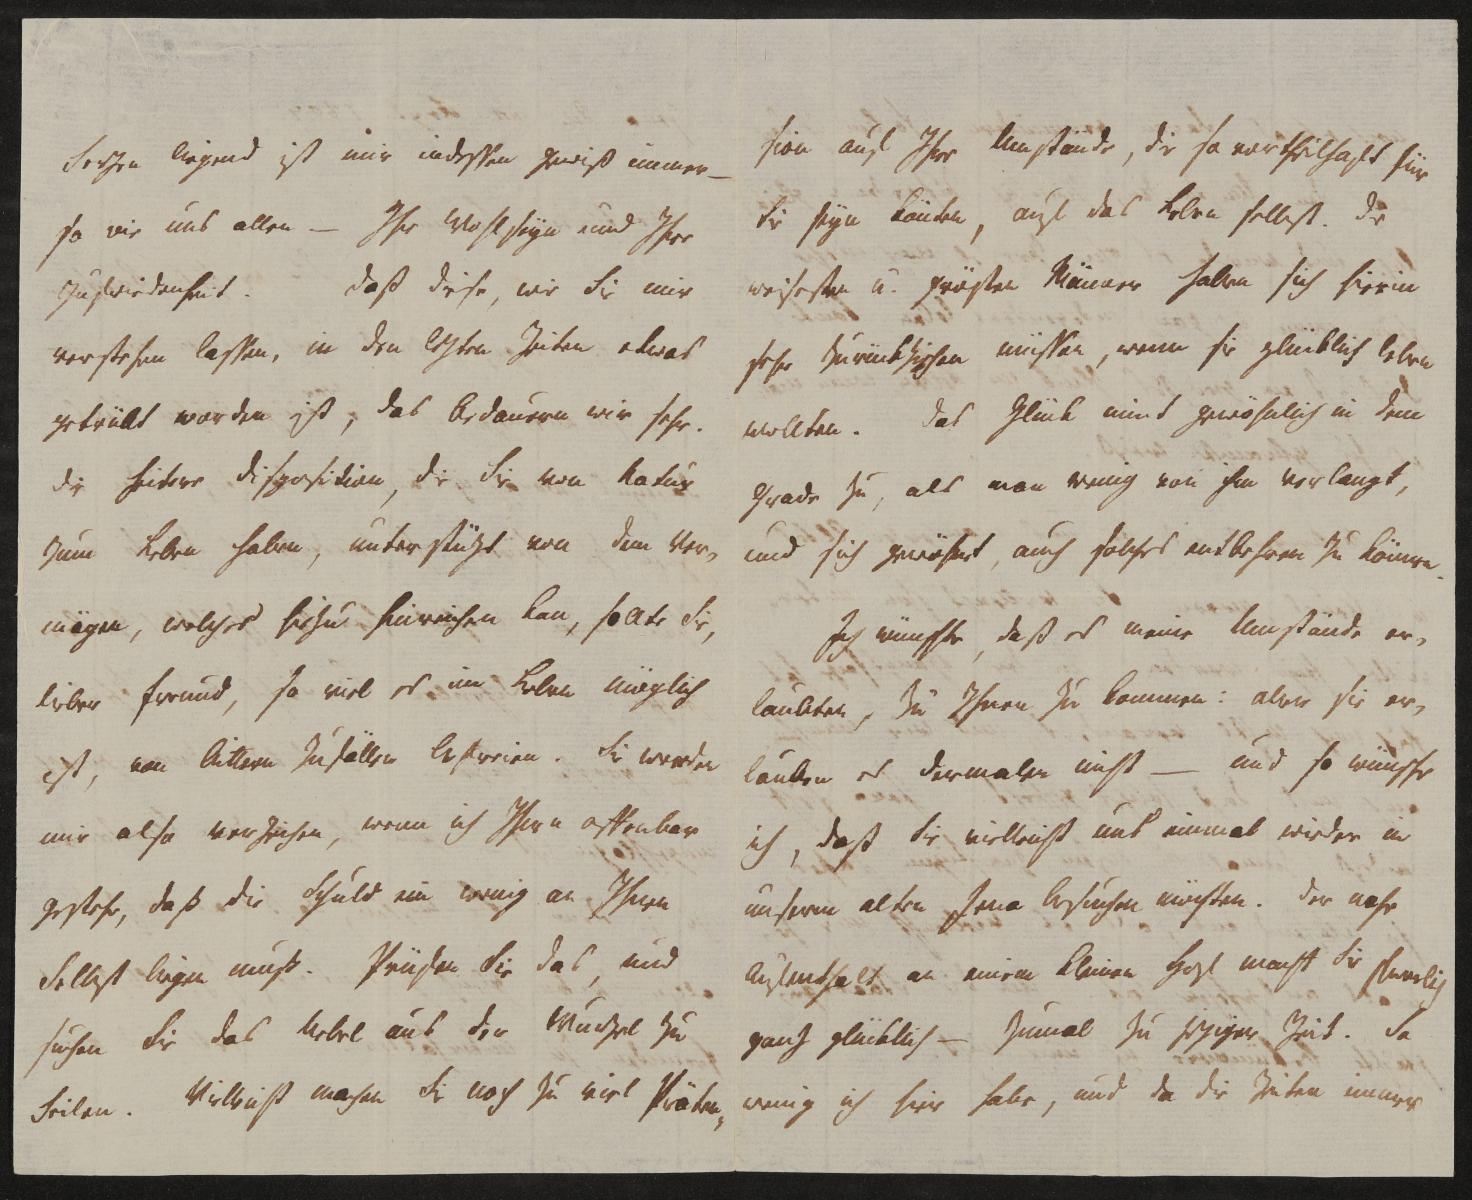 Herzen liegend ist mir indessen gewiß immer —
so wie uns allen — Ihr Wohlseyn und Ihre
Zufriedenheit. Daß diese, wie Sie mir
verstehen lassen, in den lezten Zeiten etwas
getrübt worden ist, das bedauern wir sehr.
Die heitere Disposition, die Sie von Natur
zum Leben haben, unterstüzt von dem Ver-
mögen, welches hiezu hinreichen kan, sollte Sie,
lieber Freund, so viel es im Leben möglich
ist, von bittern Zufällen befreien. Sie werden
mir also verzeihen, wenn ich Ihnen offenbar
gestehe, daß die Schuld ein wenig an Ihnen
selbst liegen muß. Prüfen Sie das, und
suchen Sie das Uebel aus der Wurzel zu
heilen. Vielleicht machen Sie noch zu viel Präten-
sion auf Ihre Umstände, die so vortheilhaft für
Sie seyn könten, auf das Leben selbst. Die
weisesten u. grösten Männer haben sich hierin
sehr zurückziehen müssen, wenn sie glücklich leben
wollten. Das Glück nimt gewöhnlich in dem
Grade zu, als man wenig von ihm verlangt,
und sich gewöhnt, auch solches entbehren zu können.
Ich wünschte, daß es meine Umstände er-
laubten, zu Ihnen zu kommen: aber sie er-
lauben es dermalen nicht — und so wünsche
ich, daß Sie vielleicht uns einmal wieder in
unserm alten Jena besuchen möchten. Der nahe
Aufenthalt an einem kleinen Hof macht Sie schwerlich
ganz glücklich — zumal zu jeziger Zeit. So
wenig ich hier habe, und da die Zeiten immer